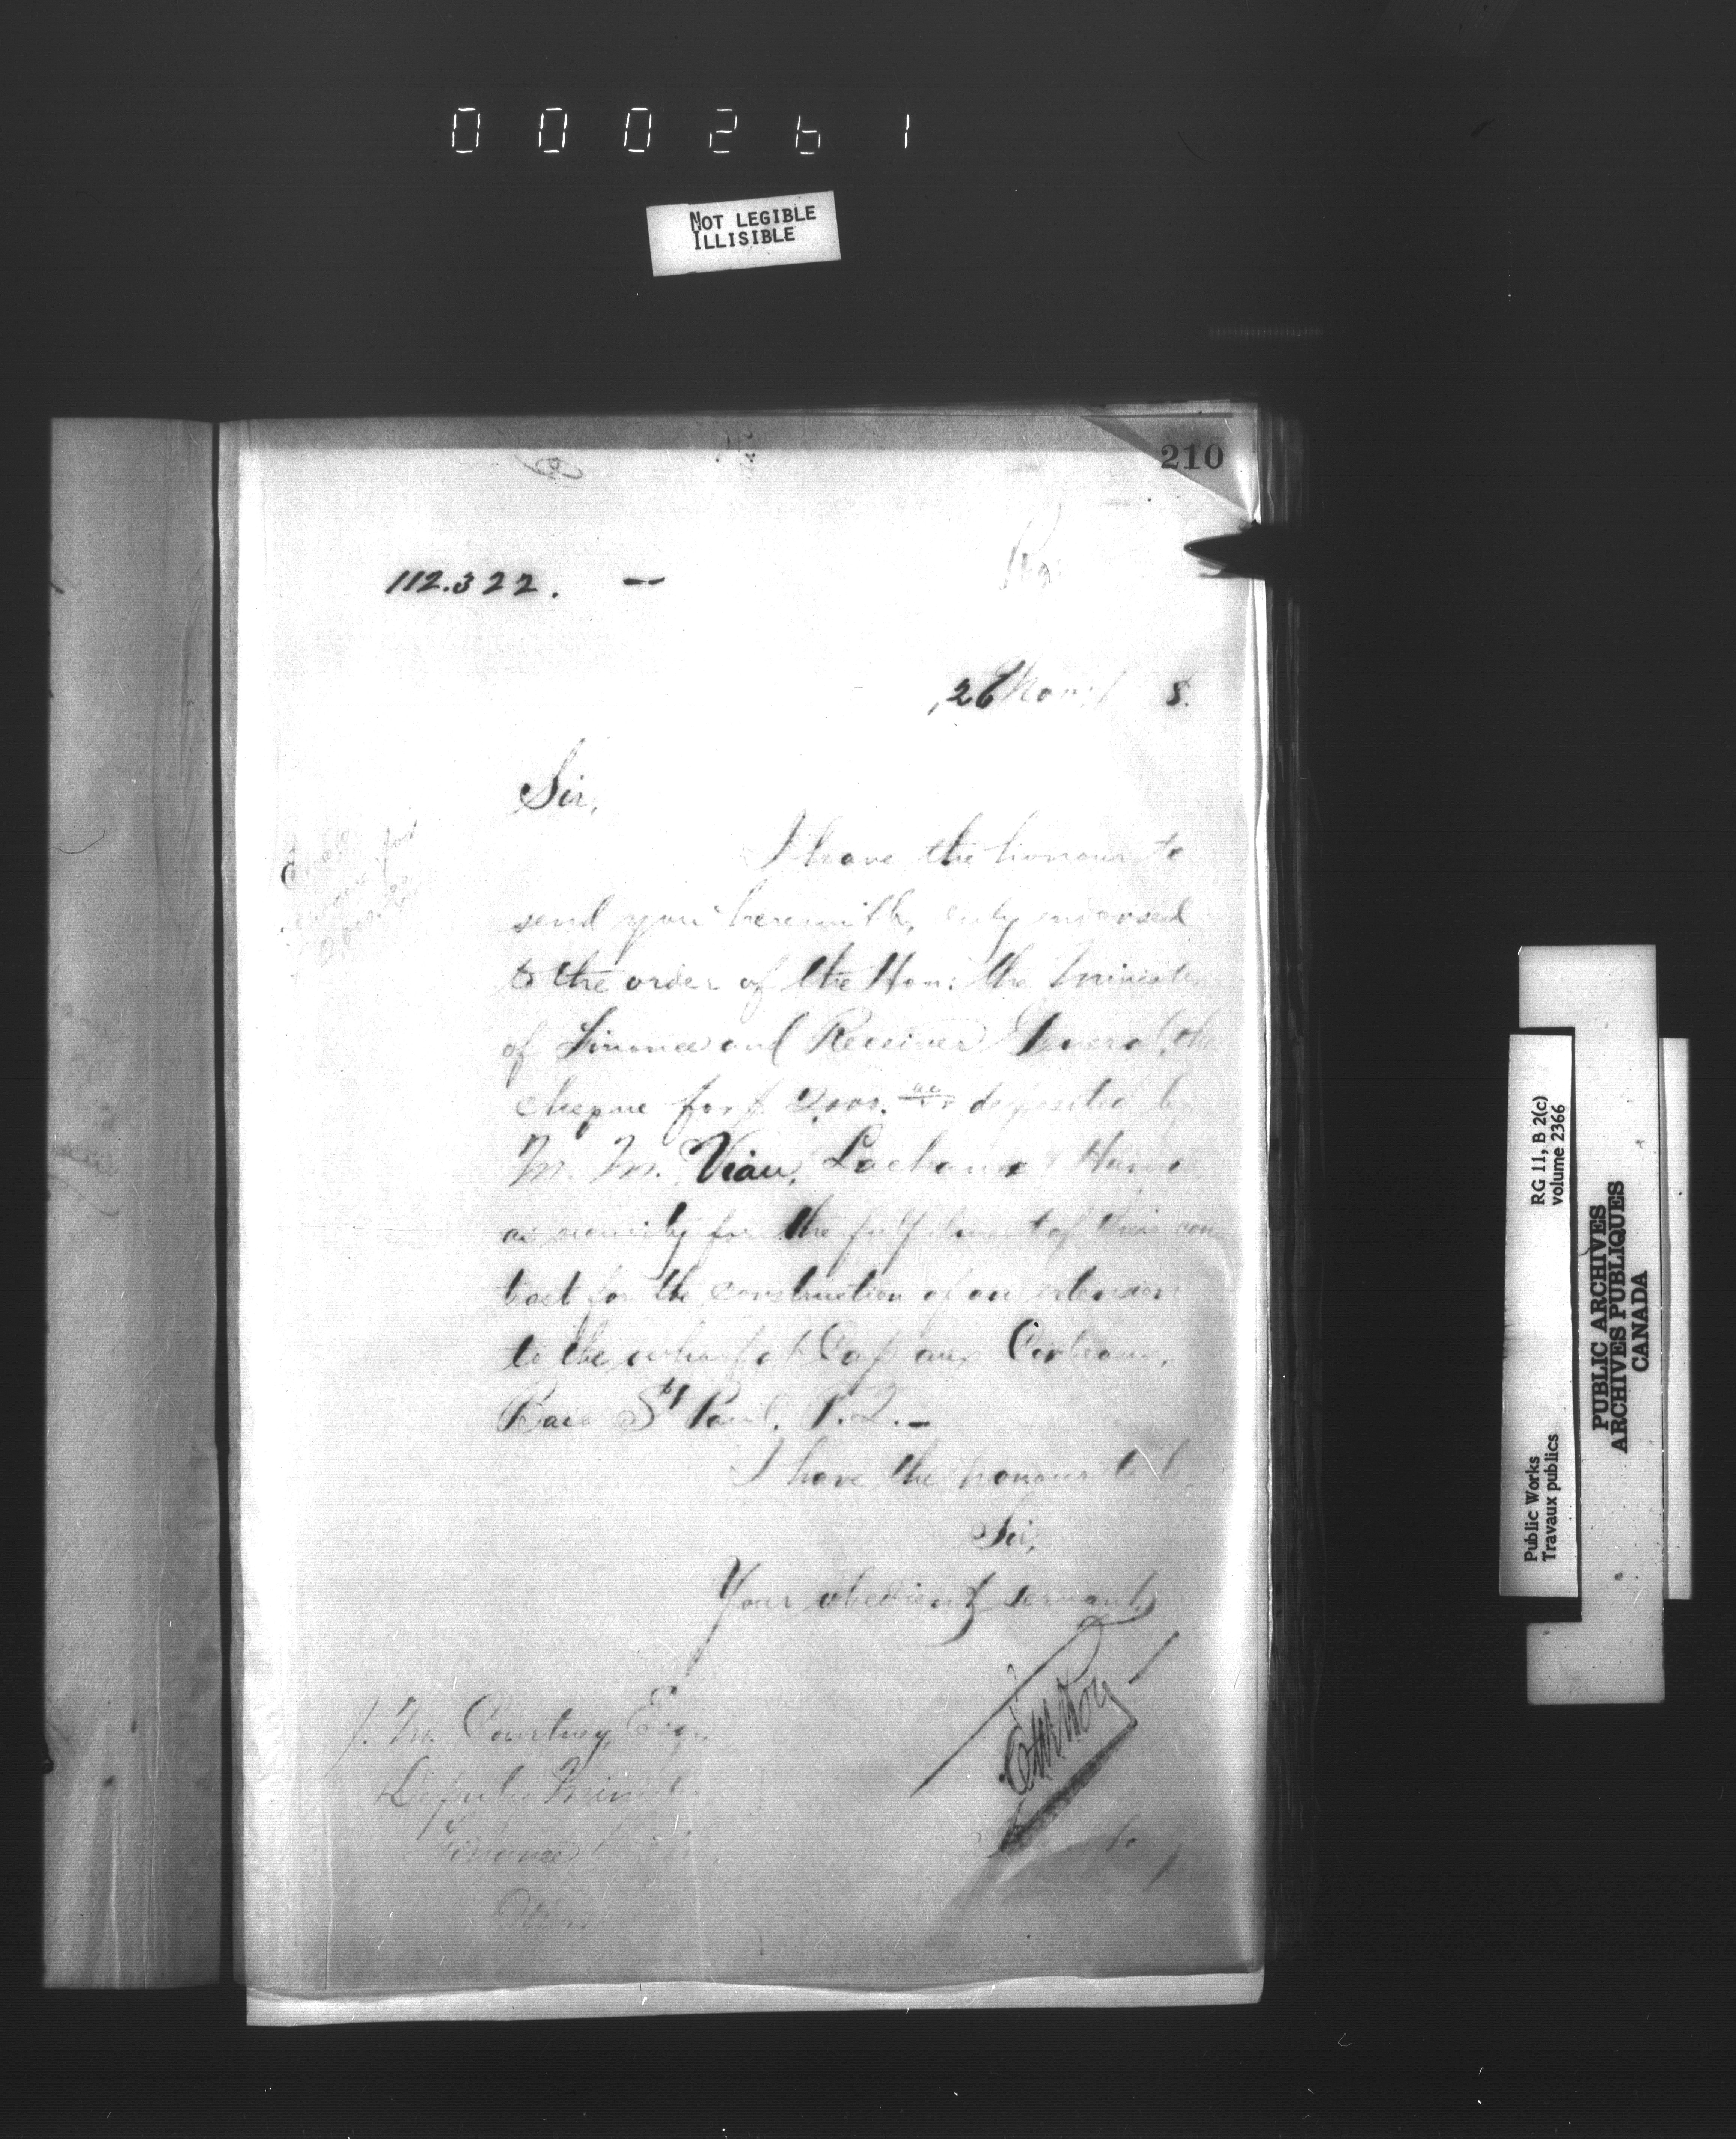 000261
NOT LEGIBLE
ILLISIBLE
210
112.322. --
26 8.
Sir,
I have the honour to
send you herewith, duly endorsed
to the order of the Hon: the Minister
of Finance and Receiver General, the
cheque for $ 2,000. deposited by
M. M. Viau, Lachance &
as security for the fulfilment of their con
tract for the construction of an extension
to the wharf at Cap aux Corbeaux,
Baie St Paul, P.Q.-
I have the honour to be
Sir,
Your obedient servant,
J. M. Courtney, Esq.
Deputy Minister
Finance
RG 11, B 2(c)
volume 2366
Public Works
Travaux publics
PUBLIC ARCHIVES
ARCHIVES PUBLIQUES
CANADA